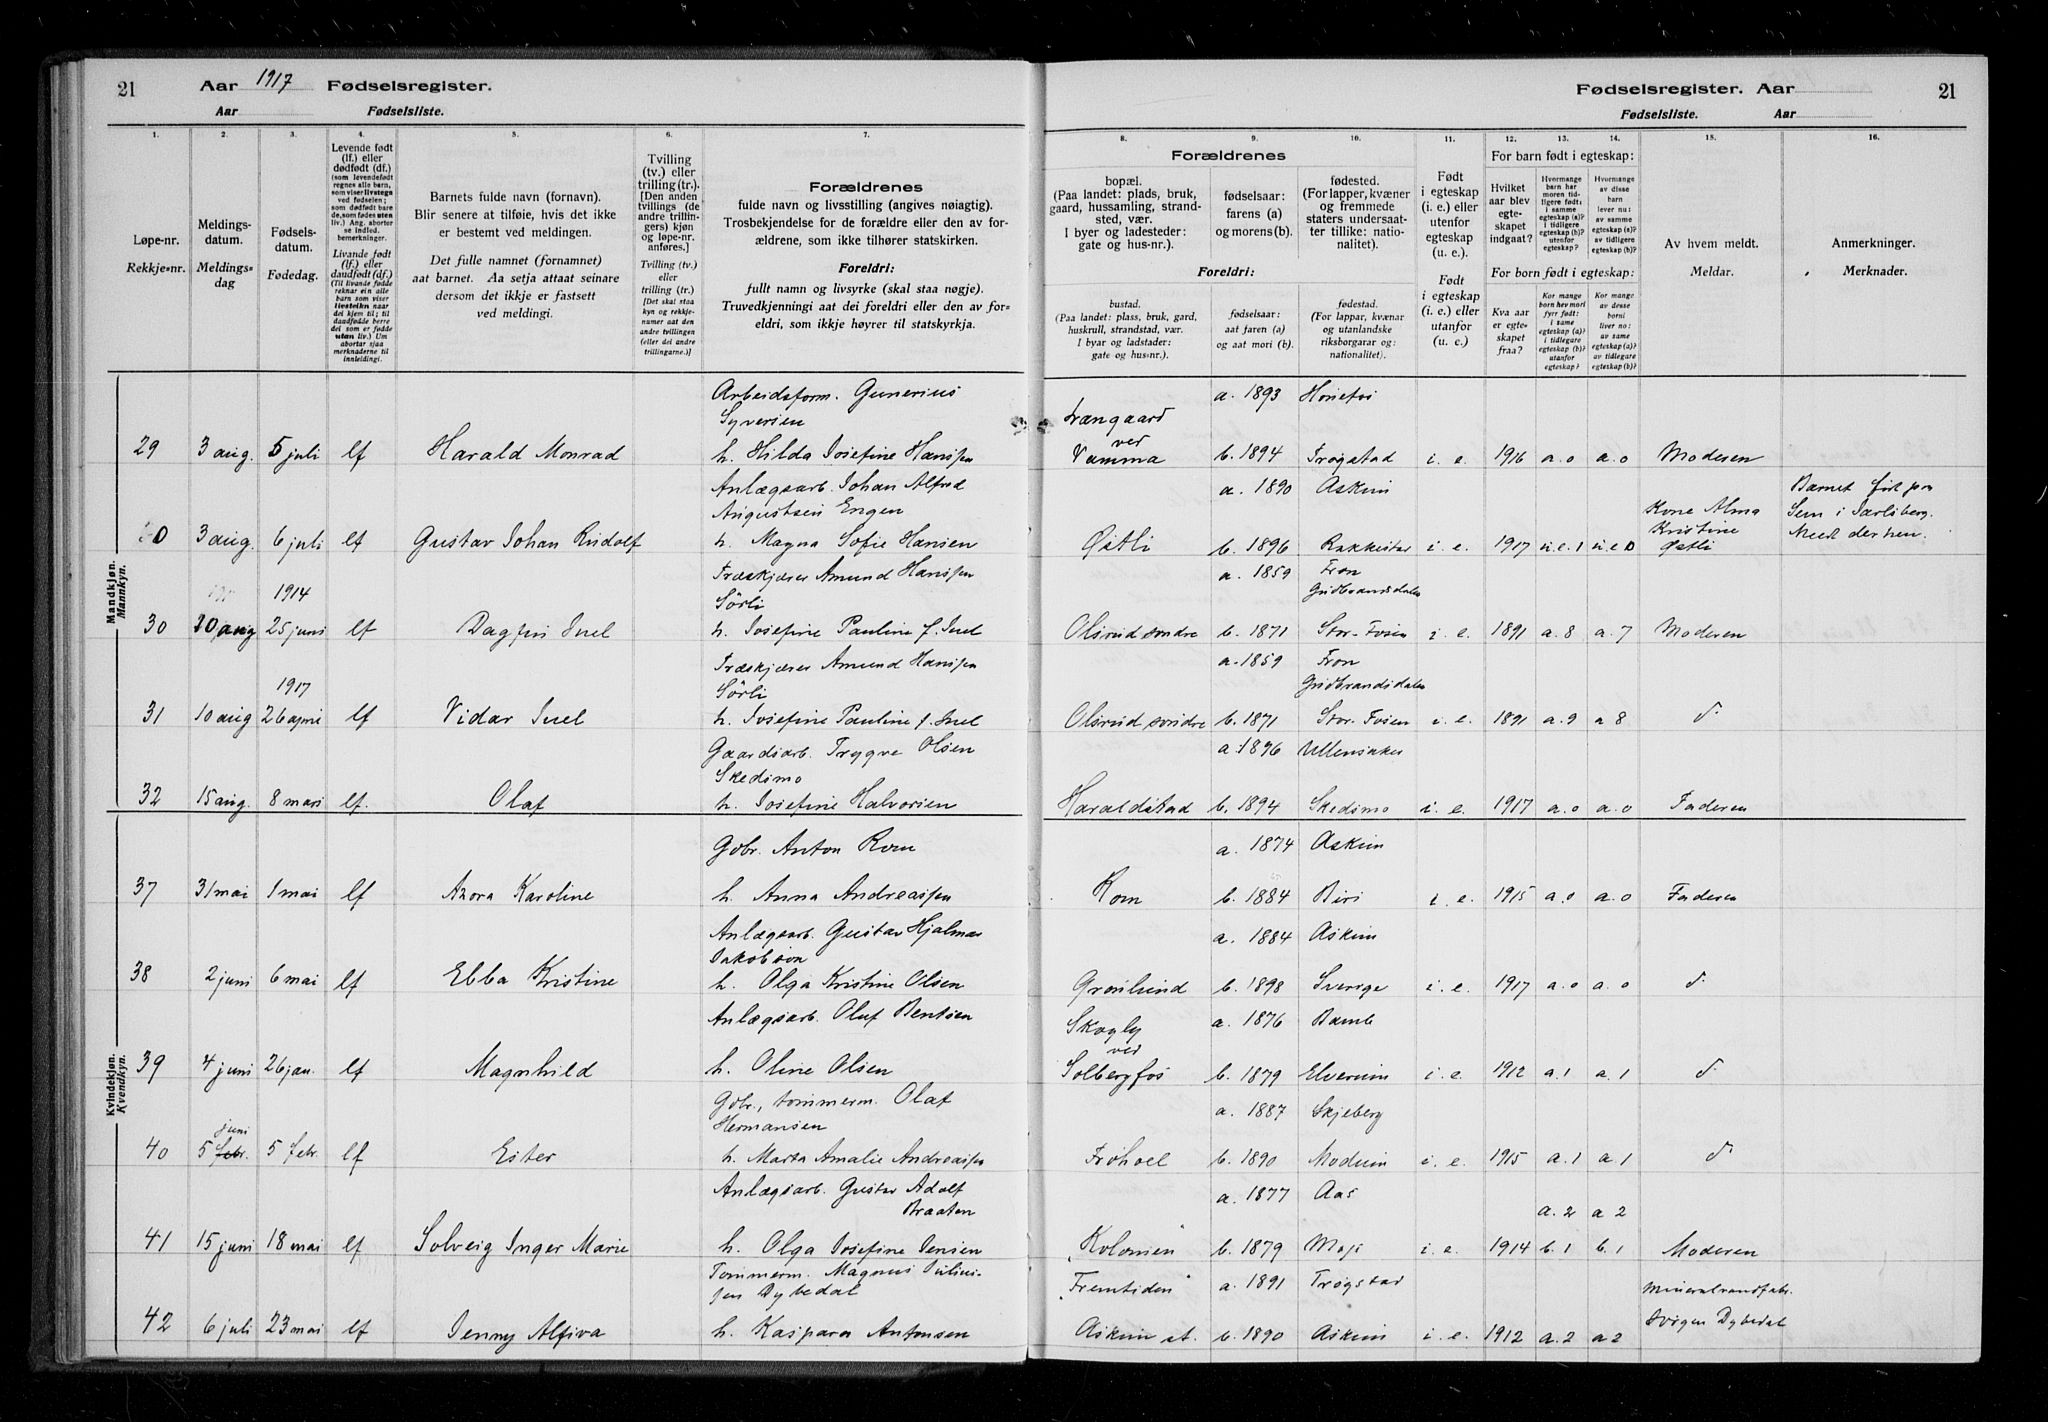 21
Aar 1917 Fødselsregister.
Aar Fødselsliste.
Fødselsregister. Aar
21
Fødselsliste. Aar
1. 2. 3. 4. 5. 6. 7.
8. 9. 10. 11. 12. 13. 14. 15. 16.
Løpe-nr.
Rekkje-nr.
Meldings-
datum.
Meldings-
dag
Fødsels-
datum.
Fødedag.
Levende født
(lf.) eller
dødfødt (df.)
(som levendefødt
regnes alle barn,
som viser livstegn
ved fødselen;
som dødfødt bare
de, som fødes uten
liv.) Ang. aborter
se indled.
bemerkninger.
Livande født
(lf.) eller
daudfødt (df.)
(Til livande fødde
reknar ein alle
barn som viser
livsteikn naar
dei kjem til; til
daudfødde berre
dei som er fødde
utan liv.) Um
abortar sjaa
merknaderne til
innleidingi.
Barnets fulde navn (fornavn).
Blir senere at tilføie, hvis det ikke
er bestemt ved meldingen.
Det fulle namnet (fornamnet)
aat barnet. Aa setja attaat seinare
dersom det ikkje er fastsett
ved meldingi.
Tvilling
(tv.) eller
trilling (tr.).
[Den anden
tvillings (de
andre trillin-
gers) kjøn
og løpe-nr.
anføres.]
Tvilling (tv.)
eller
trilling (tr.)
[Det skal staa
kyn og rekkje-
numer aat den
andre tvillingen
(eller dei andre
trillingarne.)]
Forældrenes
fulde navn og livsstilling (angives nøiagtig).
Trosbekjendelse for de forældre eller den av for-
ældrene, som ikke tilhører statskirken.
Foreldri:
fullt namn og livsyrke (skal staa nøgje).
Truvedkjenningi aat dei foreldri eller den av for-
eldri, som ikkje høyrer til statskyrkja.
Forældrenes
bopæl.
(Paa landet: plads, bruk,
gaard, hussamling, strand-
sted, vær.
I byer og ladesteder:
gate og hus-nr.).
fødselsaar:
farens (a)
og morens (b).
fødested.
(For lapper, kvæner
og fremmede
staters undersaat-
ter tillike: natio-
nalitet).
Foreldri:
bustad.
(Paa landet: plass, bruk, gard,
huskrull, strandstad, vær.
I byar og ladstader:
gate og hus-nr.).
fødselsaar:
aat faren (a)
og aat mori (b).
fødestad.
(For lappar, kvænar
og utanlandske
riksborgarar og:
nationalitet).
Født
i egteskap
(i. e.) eller
utenfor
egteskap
(u. e.).
Født
i egteskap
(i. e.) eller
utanfor
egteskap
(u. e.).
For barn født i egteskap:
Hvilket
aar blev
egte-
skapet
indgaat?
Hvormange
barn har
moren tid-
ligere født:
i samme
egteskap (a)?
i tidligere
egteskap (b)?
utenfor
egteskap?
Hvormange
av disse
barn
lever nu:
av samme
egteskap (a)?
av tidligere
egteskap (b)?
For born født i egteskap:
Kva aar
er egte-
skapet
fraa?
Kor mange
born hev mori
fyrr født:
i same
egteskap (a)?
i tidlegare
egteskap (b)?
utanfor
egteskap?
Kor mange
av desse
borni
liver no:
av same
egteskap (a)?
av tidlegare
egteskap (b)?
Av hvem meldt.
Meldar.
Anmerkninger.
Merknader.
Mandkjøn.
Mannkyn.
Arbeidsform. Gunerius a. 1893 Hønefos
Syversen Vrangaard
ved
29 3 aug. 5 juli lf Harald Monrad h. Hilda Josefine Hanssen Vamma b. 1894 Trøgstad i. e. 1916 a. 0 a. 0 Moderen
Anlægsarb. Johan Alfred a. 1890 Askim
Augustsen Engen Kone Alma Barnet født paa
Kristine Sem i Jarlsberg.
0 3 aug. 6 juli lf Gustav Johan Rudolf h. Magna Sofie Hansen Østli b. 1896 Rakkestad i. e. 1917 u. e. 1 u. e 0 Østli Meldt derhen.
Træskjærer Amund Hanssen a. 1859 Fron
1914 Sørli Gudbrandsdalen
30 10 aug 25 juni lf Dagfin Juel h. Josefine Pauline f. Juel Olsrud søndre b. 1871 Stor-Fosen i. e. 1891 a. 8 a. 7 Moderen
Træskjærer Amund Hanssen a. 1859 Fron
1917 Sørli Gudbrandsdalen
31 10 aug 26 april lf Vidar Juel h. Josefine Pauline f. Juel Olsrud søndre b. 1871 Stor-Fosen i. e. 1891 a. 9 a 8 d.
Gaardsarb. Trygve Olsen a. 1896 Ullensaker
Skedsmo
32 15 aug. 8 mars lf. Olaf h. Josefine Halvorsen Haraldstad b. 1894 Skedsmo i. e. 1917 a. 0 a. 0 Faderen
Kvindekjøn.
Kvendkyn.
Gbr. Anton Rom a. 1874 Askim
37 31 mai 1 mai lf Azora Karoline h. Anna Andreassen Rom b. 1884 Biri i. e. 1915 a. 0 a. 0 Faderen
Anlægsarb. Gustav Hjalmar a. 1884 Askim
Jakobson
38 2 juni 6 mai lf Ebba Kristine h. Olga Kristine Olsen Grønlund b. 1898 Sverige i. e. 1917 a. 0 a. 0 d.
Anlægsarb. Oluf Bentsen Skogly a. 1876 Bamle
ved
39 4 juni 26 jan. lf Magnhild h. Oline Olsen Solbergfos b. 1879 Elverum i. e. 1912 a. 1 a. 1 d
Gbr., tømmerm. Olaf a. 1887 Skjeberg
juni Hermansen
40 5 febr. 5 febr. lf Ester h. Marta Amalie Andreassen Frøhoel b. 1890 Modum i. e. 1915 a. 1 a. 1 d.
Anlægsarb. Gustav Adolf a. 1877 Aas
Braaten a. 2 a 2
41 15 juni 18 mai lf Solveig Inger Marie h. Olga Josefine Jensen Kolonien b. 1879 Moss i. e. 1914 b. 1 b. 1 Moderen
Tømmerm. Magnus Julius- „Fremtiden" a. 1891 Trøgstad Mineralvandfabr.
sen Dybedal
42 6 juli 23 mai lf Jenny Alfiva h. Kaspara Antonsen Askim st. b. 1890 Askim i. e. 1912 a. 2 a 2 Jørgen Dybedal